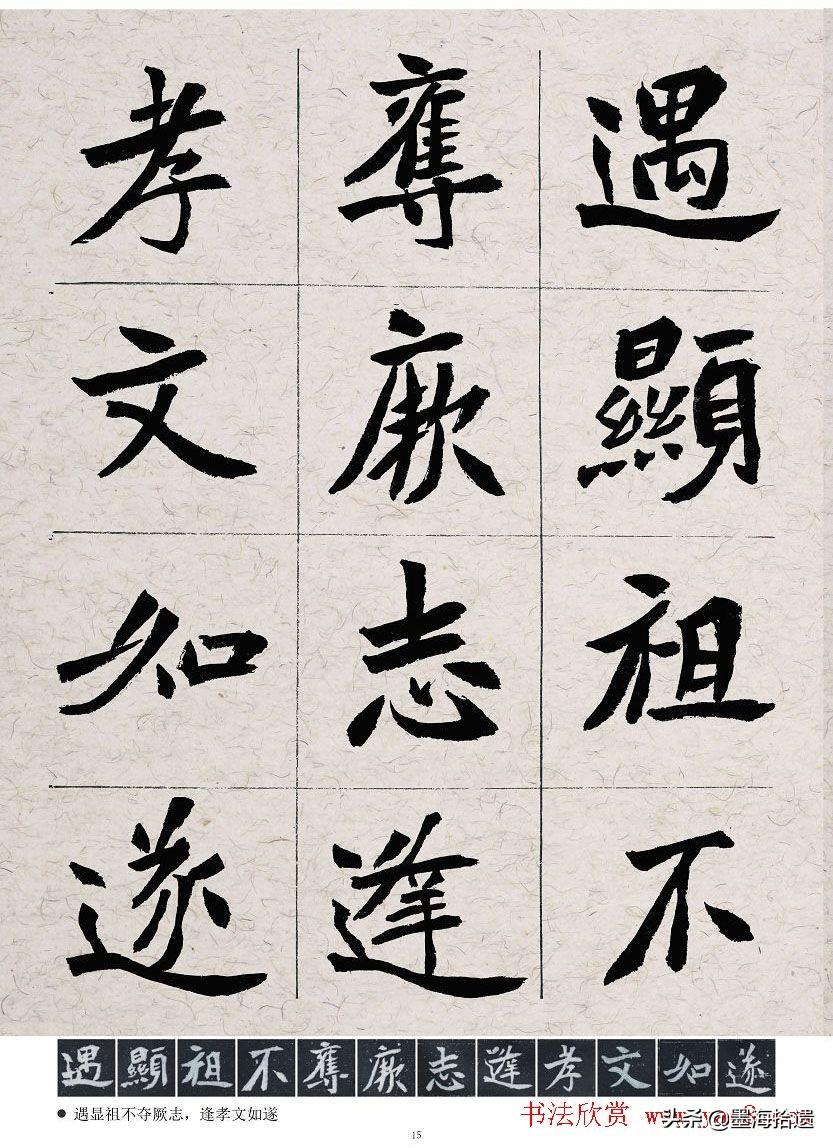 遇顯祖不
奪厥志逢
孝文如遂
遇顯祖不奪厥志逢孝文如遂
● 遇显祖不夺厥志，逢孝文如遂
书法欣赏
头条@墨海拾遗
15